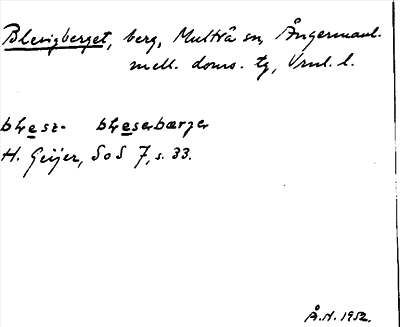 Blesigberget, berg, Multrå sn, Ångermanl.
mell. doms. tg, Vrnl. l.
blesz- blesarbærjer
H. Geijer, SoS 7, s. 33.
Å.N. 1952.